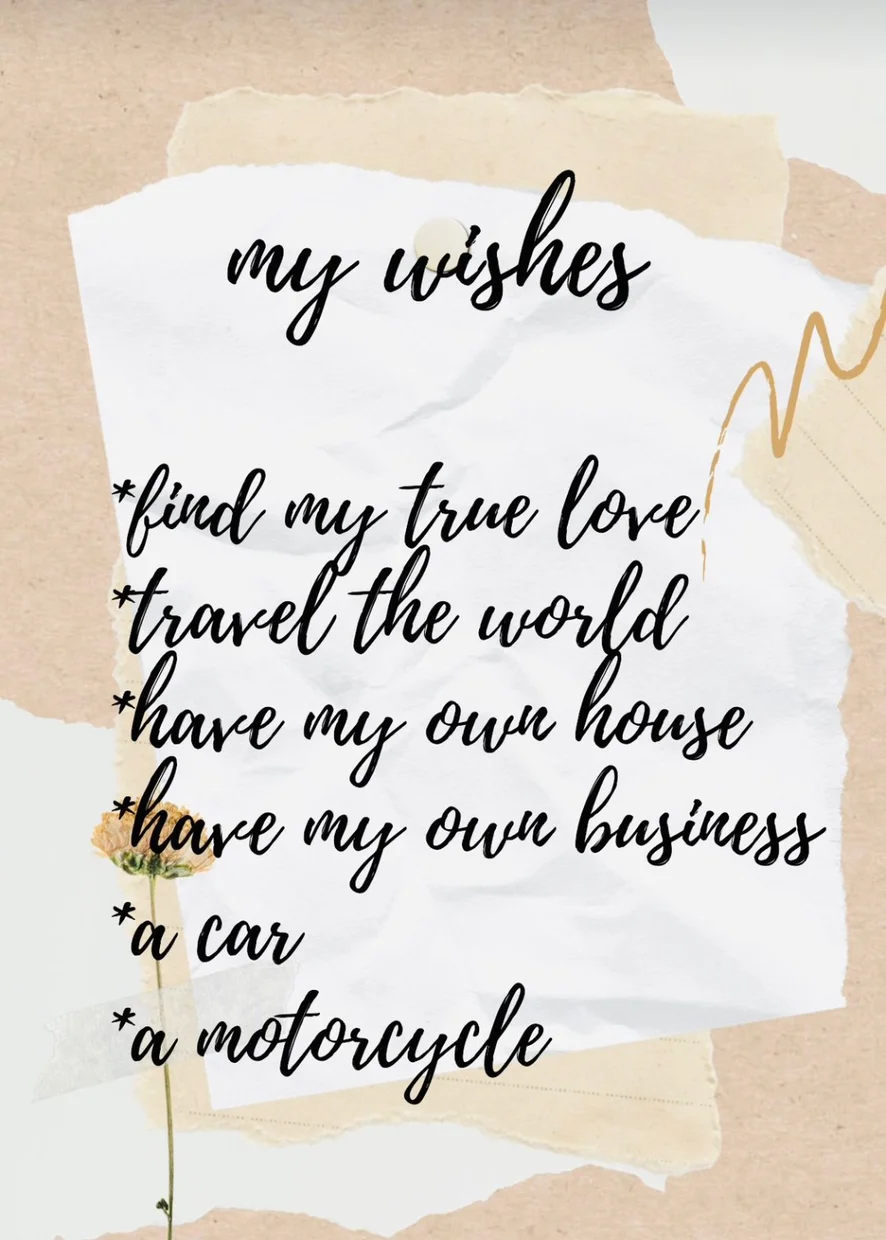 my wishes
*find my true love
*travel the world
*have my own house
*have my own business
*a car
*a motorcycle